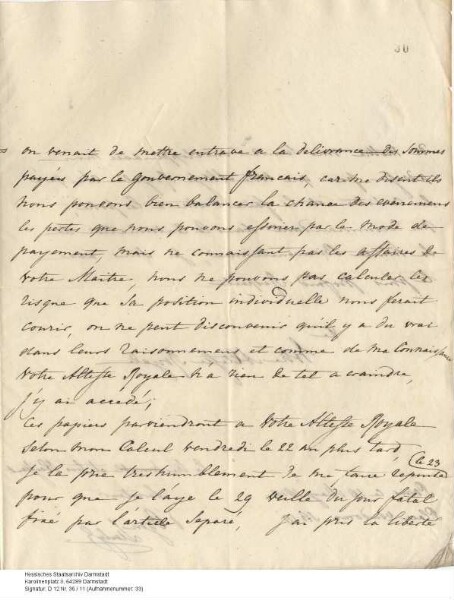 30
on venait de mettre entrave a la delivrance des sommes
payées par le gouvernement français, car me disent ils
nous pouvons bien balancer la chance des evenemens
les pertes que nous pouvons essuier par le mode de
payement, mais ne connaissant pas les affaires de
votre Maitre, nous ne pouvons pas calculer les
risque que sa position individuelle nous ferait
courir, on ne peut disconvenir qu'il y a du vrai
dans leurs raisonnement et comme de ma connaissance
Votre Altesse Royale n'a rien de tel a craindre,
j'y ai accedé;
Ces papiers parviendront a Votre Altesse Royale
selon mon calcul vendredi le 22 au plus tard
je la prie treshumblement de me faire reponse le 23
pour que je l'aye le 29 veille du jour fatal
fixé par l'article separé, j'ai pris la liberté
Hessisches Staatsarchiv Darmstadt
Karolinenplatz 3, 64289 Darmstadt
Signatur: D 12 Nr. 36 / 11 (Aufnahmenummer: 33)